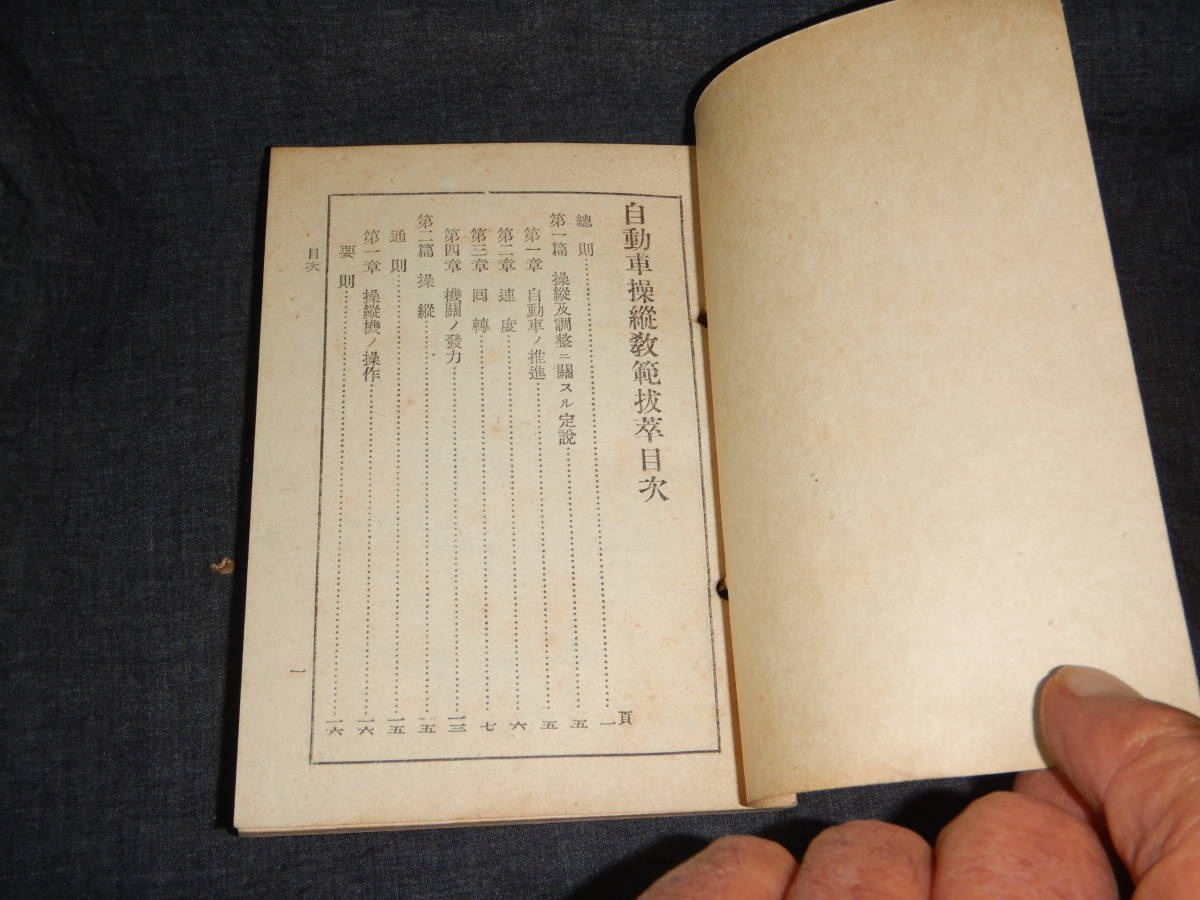 自動車操縱教範拔萃目次
頁
總則……一
第一篇 操縱及調整ニ關スル定說……五
第一章 自動車ノ推進……五
第二章 速度……六
第三章 回轉……七
第四章 機關ノ發力……一三
第二篇 操縱……一五
通則……一五
第一章 操縱機ノ操作……一六
要則……一六
目次
一